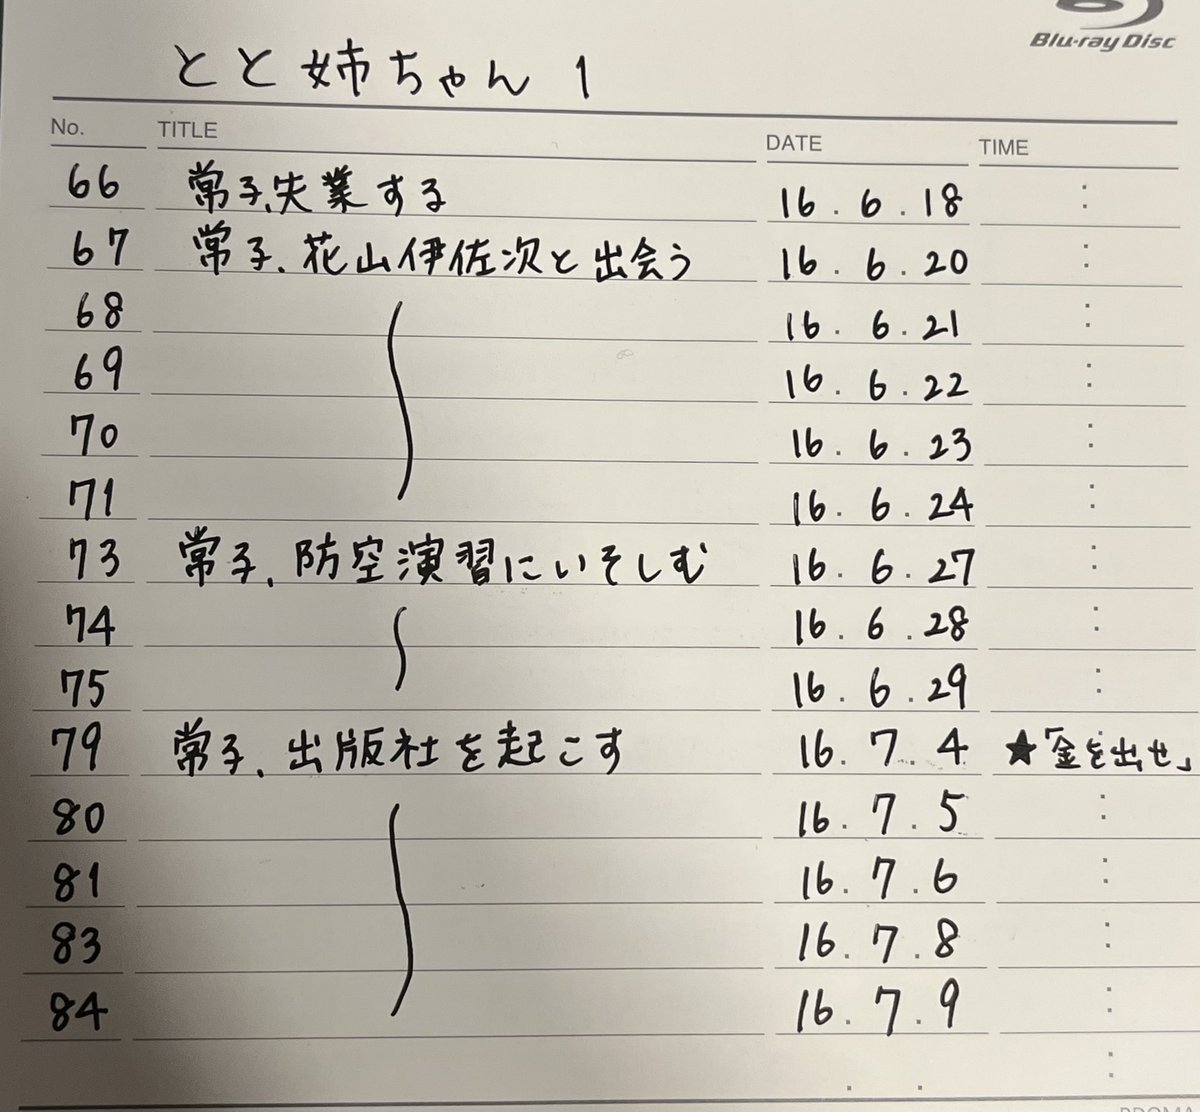 Blu-ray Disc
とと姉ちゃん 1
No. TITLE DATE TIME
66 常子、失業する 16.6.18 :
67 常子、花山伊佐次と出会う 16.6.20 :
68 16.6.21 :
69 16.6.22 :
70 16.6.23 :
71 16.6.24 :
73 常子、防空演習にいそしむ 16.6.27 :
74 16.6.28 :
75 16.6.29 :
79 常子、出版社を起こす 16.7.4 ★「金を出せ」
80 16.7.5 :
81 16.7.6 :
83 16.7.8 :
84 16.7.9 :
. . :